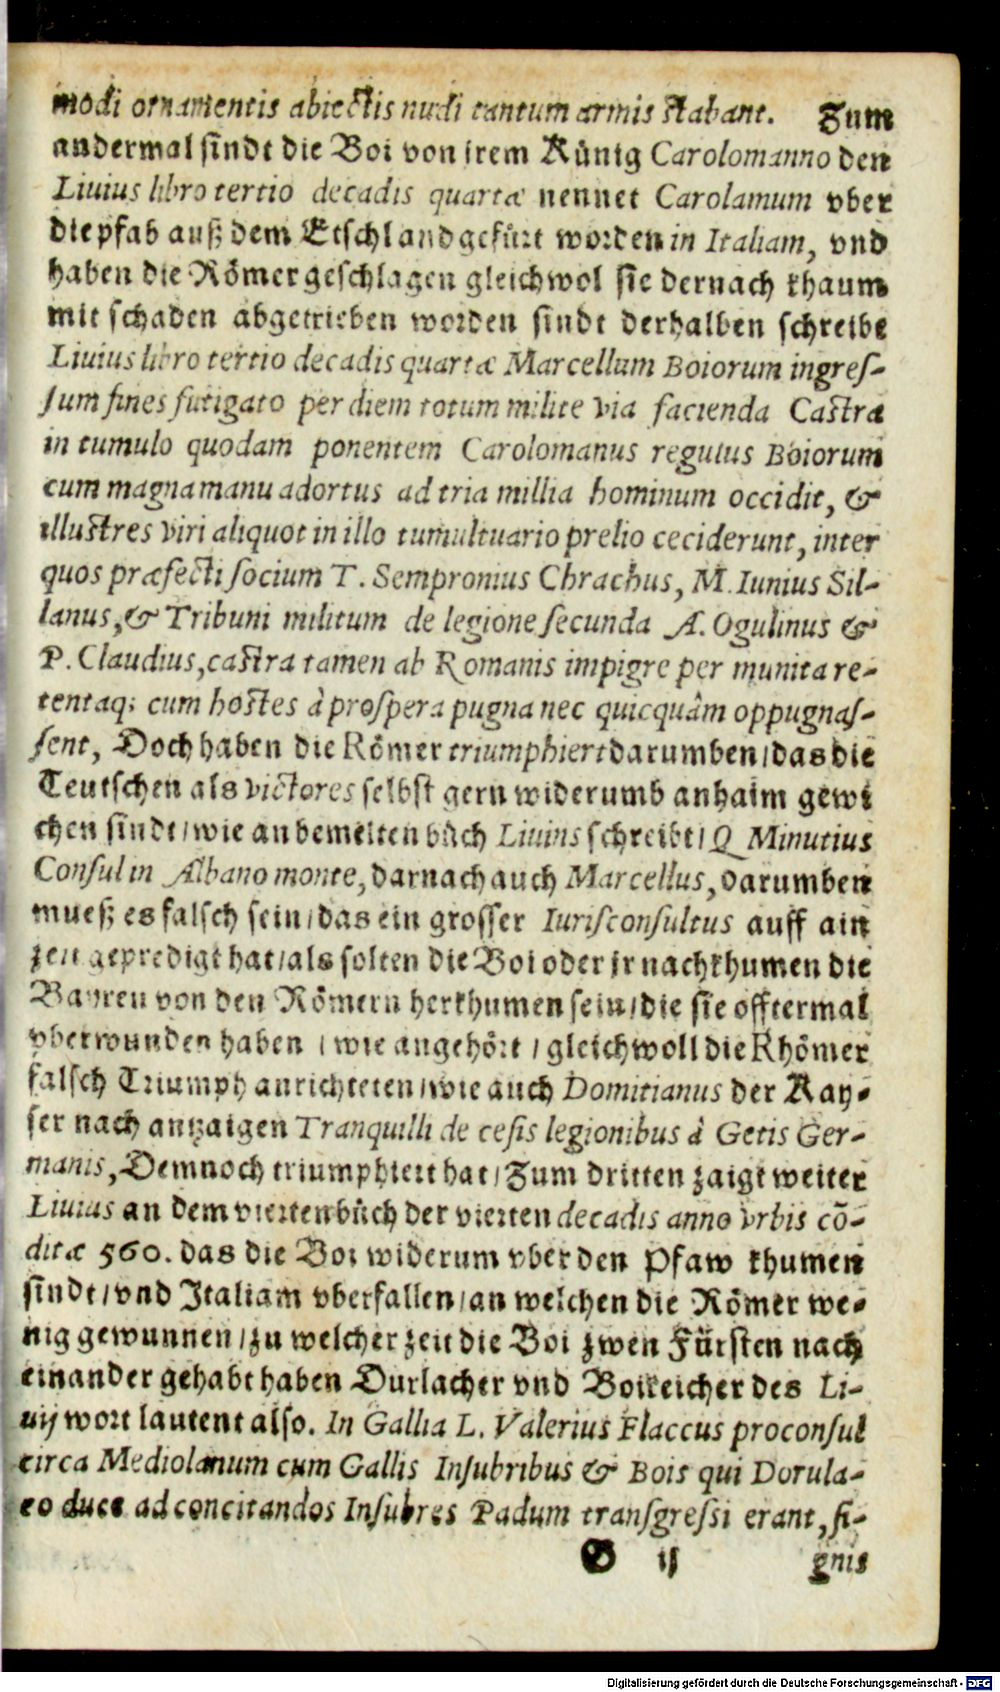 modi ornamentis abiectis nudi tantum armis stabant. Zum
andermal sindt die Boi von irem Künig Carolomanno den
Liuius libro tertio decadis quartæ nennet Carolamum vber
die pfab auß dem Etschland gefürt worden in Italiam, vnd
haben die Römer geschlagen gleichwol sie dernach khaum
mit schaden abgetrieben worden sindt derhalben schreibt
Liuius libro tertio decadis quartæ Marcellum Boiorum ingres-
sum fines futigato per diem totum milite via facienda Castra
in tumulo quodam ponentem Carolomanus regulus Boiorum
cum magna manu adortus ad tria millia hominum occidit, &
illustres viri aliquot in illo tumultuario prelio ceciderunt, inter
quos præfecti socium T. Sempronius Chrachus, M. Iunius Sil-
lanus, & Tribuni militum de legione secunda A. Ogulinus &
P. Claudius, castra tamen ab Romanis impigre per munita re-
tentaq; cum hostes à prospera pugna nec quicquâm oppugnas-
sent, Doch haben die Römer triumphiert darumben/das die
Teutschen als victores selbst gern widerumb anhaim gewi
chen sindt/wie an bemelten bůch Liuins schreibt/Q Minutius
Consul in Albano monte, darnach auch Marcellus, darumben
mueß es falsch sein/das ein grosser Iurisconsultus auff ain
zeit gepredigt hat/als solten die Boi oder ir nachkhumen die
Bayren von den Römern herkhumen sein/die sie offtermal
vberwunden haben / wie angehört / gleichwoll die Rhömer
falsch Triumph anrichteten/wie auch Domitianus der Kay-
ser nach antzaigen Tranquilli de cesis legionibus à Getis Ger-
manis, Demnoch triumphiert hat/Zum dritten zaigt weiter
Liuius an dem vierten bůch der vierten decadis anno vrbis cō-
ditæ 560. das die Boi widerum vber den Pfaw khumen
sindt/vnd Italiam vberfallen/an welchen die Römer we-
nig gewunnen/zu welcher zeit die Boi zwen Fürsten nach
einander gehabt haben Durlacher vnd Boireicher des Li-
uij wort lautent also. In Gallia L. Valerius Flaccus proconsul
circa Mediolanum cum Gallis Insubribus & Bois qui Dorula-
co duce ad concitandos Insubres Padum transgressi erant, si-
G ij gnis
Digitalisierung gefördert durch die Deutsche Forschungsgemeinschaft - DFG